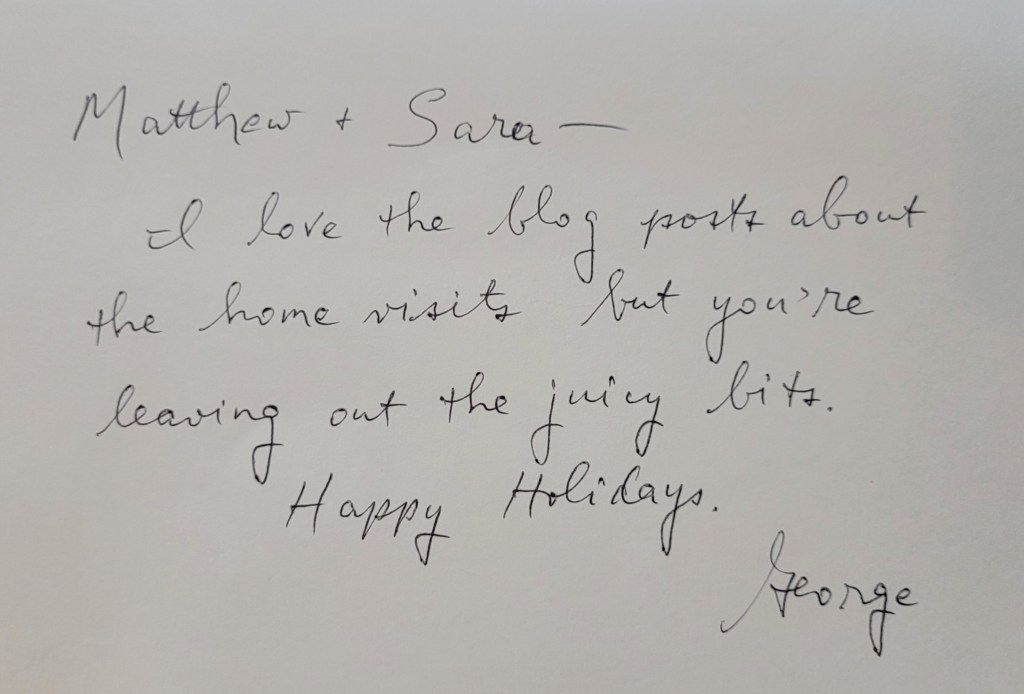 Matthew + Sara —
I love the blog posts about
the home visits but you're
leaving out the juicy bits.
Happy Holidays.
George